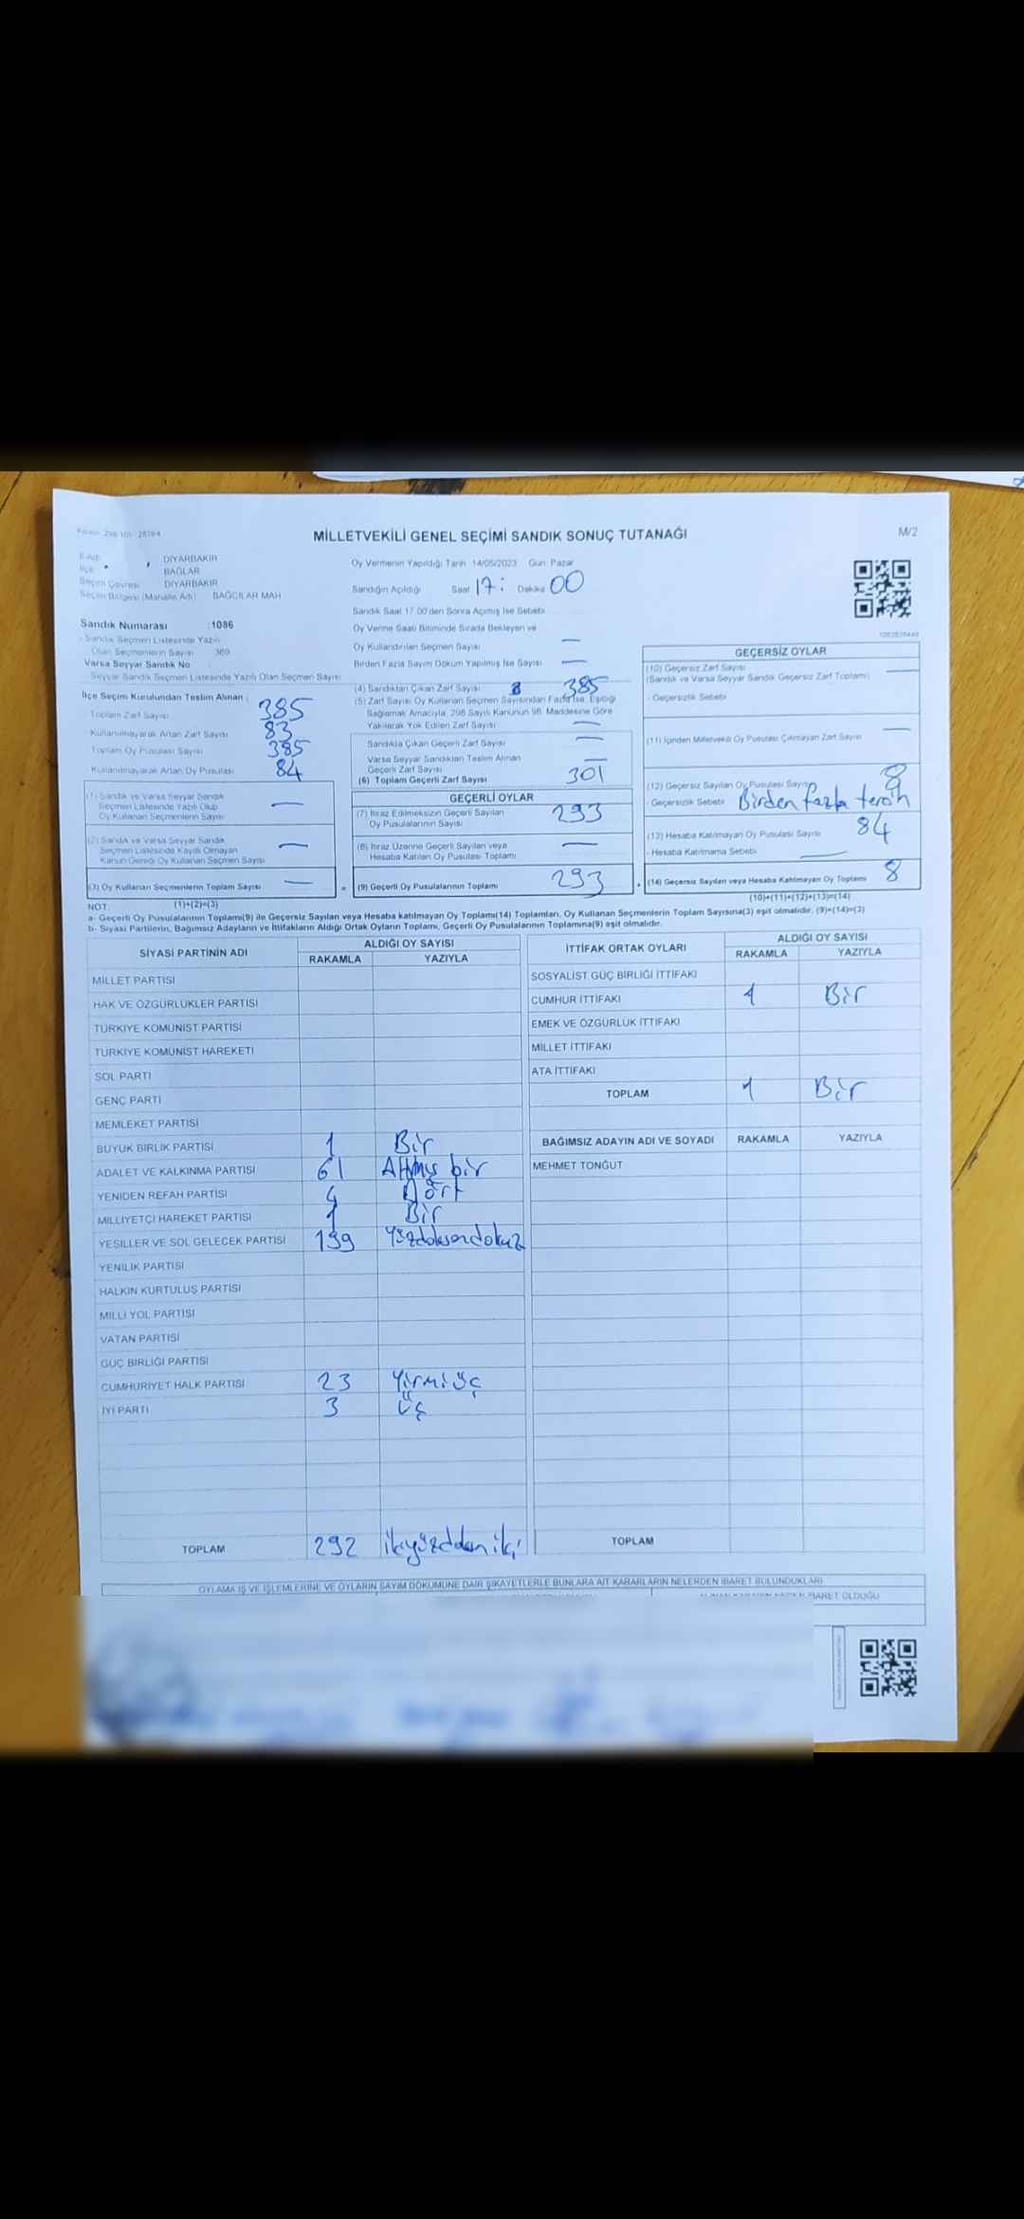 MİLLETVEKİLİ GENEL SEÇİMİ SANDIK SONUÇ TUTANAĞI
M/2
DİYARBAKIR
BAĞLAR
Seçim Çevresi DİYARBAKIR
Seçim Bölgesi (Mahalle Adı) BAĞCILAR MAH
Sandık Numarası :1086
Sandık Seçmen Listesinde Yazılı
Olan Seçmenlerin Sayısı
Varsa Seyyar Sandık No
Seyyar Sandık Seçmen Listesinde Yazılı Olan Seçmen Sayısı
İlçe Seçim Kurulundan Teslim Alınan :
Toplam Zarf Sayısı 385
Kullanılmayarak Artan Zarf Sayısı 83
Toplam Oy Pusulası Sayısı 385
Kullanılmayarak Artan Oy Pusulası 84
(1) Sandık ve Varsa Seyyar Sandık
Seçmen Listesinde Yazılı Olup
Oy Kullanan Seçmenlerin Sayısı —
(2) Sandık ve Varsa Seyyar Sandık
Seçmen Listesinde Kayıtlı Olmayan
Kanun Gereği Oy Kullanan Seçmen Sayısı —
(3) Oy Kullanan Seçmenlerin Toplam Sayısı —
(1)+(2)=(3)
Oy Vermenin Yapıldığı Tarih 14/05/2023 Gün Pazar
Sandığın Açıldığı Saat 17: Dakika 00
Sandık Saat 17.00'den Sonra Açılmış İse Sebebi
Oy Verme Saati Bitiminde Sırada Bekleyen ve
Oy Kullandırılan Seçmen Sayısı —
Birden Fazla Sayım Döküm Yapılmış İse Sayısı —
(4) Sandıktan Çıkan Zarf Sayısı 385
(5) Zarf Sayısı Oy Kullanan Seçmen Sayısından Fazla İse, Eşitliği
Sağlamak Amacıyla, 298 Sayılı Kanunun 98. Maddesine Göre
Yakılarak Yok Edilen Zarf Sayısı —
Sandıkta Çıkan Geçerli Zarf Sayısı —
Varsa Seyyar Sandıktan Teslim Alınan
Geçerli Zarf Sayısı —
(6) Toplam Geçerli Zarf Sayısı 301
GEÇERLİ OYLAR
(7) İtiraz Edilmeksizin Geçerli Sayılan
Oy Pusulalarının Sayısı 293
(8) İtiraz Üzerine Geçerli Sayılan veya
Hesaba Katılan Oy Pusulası Toplamı —
(9) Geçerli Oy Pusulalarının Toplamı 293
GEÇERSİZ OYLAR
(10) Geçersiz Zarf Sayısı
(Sandık ve Varsa Seyyar Sandık Geçersiz Zarf Toplamı) —
- Geçersizlik Sebebi
(11) İçinden Milletvekili Oy Pusulası Çıkmayan Zarf Sayısı —
(12) Geçersiz Sayılan Oy Pusulası Sayısı 8
- Geçersizlik Sebebi Birden fazla
(13) Hesaba Katılmayan Oy Pusulası Sayısı 84
- Hesaba Katılmama Sebebi —
(14) Geçersiz Sayılan veya Hesaba Katılmayan Oy Toplamı 8
(10)+(11)+(12)+(13)=(14)
NOT:
a- Geçerli Oy Pusulalarının Toplamı(9) ile Geçersiz Sayılan veya Hesaba katılmayan Oy Toplamı(14) Toplamları, Oy Kullanan Seçmenlerin Toplam Sayısına(3) eşit olmalıdır. (9)+(14)=(3)
b- Siyasi Partilerin, Bağımsız Adayların ve İttifakların Aldığı Ortak Oyların Toplamı, Geçerli Oy Pusulalarının Toplamına(9) eşit olmalıdır.
SİYASİ PARTİNİN ADI ALDIĞI OY SAYISI
RAKAMLA YAZIYLA
MİLLET PARTİSİ
HAK VE ÖZGÜRLÜKLER PARTİSİ
TÜRKİYE KOMÜNİST PARTİSİ
TÜRKİYE KOMÜNİST HAREKETİ
SOL PARTİ
GENÇ PARTİ
MEMLEKET PARTİSİ
BÜYÜK BİRLİK PARTİSİ 1 Bir
ADALET VE KALKINMA PARTİSİ 61 Altmış bir
YENİDEN REFAH PARTİSİ 4 Dört
MİLLİYETÇİ HAREKET PARTİSİ 1 Bir
YEŞİLLER VE SOL GELECEK PARTİSİ 199 Yüzdoksandokuz
YENİLİK PARTİSİ
HALKIN KURTULUŞ PARTİSİ
MİLLİ YOL PARTİSİ
VATAN PARTİSİ
GÜÇ BİRLİĞİ PARTİSİ
CUMHURİYET HALK PARTİSİ 23 Yirmi üç
İYİ PARTİ 3 üç
TOPLAM 292
İTTİFAK ORTAK OYLARI ALDIĞI OY SAYISI
RAKAMLA YAZIYLA
SOSYALİST GÜÇ BİRLİĞİ İTTİFAKI
CUMHUR İTTİFAKI 1 Bir
EMEK VE ÖZGÜRLÜK İTTİFAKI
MİLLET İTTİFAKI
ATA İTTİFAKI
TOPLAM 1 Bir
BAĞIMSIZ ADAYIN ADI VE SOYADI RAKAMLA YAZIYLA
MEHMET TONĞUT
TOPLAM
OYLAMA İŞ VE İŞLEMLERİNE VE OYLARIN SAYIM DÖKÜMÜNE DAİR ŞİKAYETLERLE BUNLARA AİT KARARLARIN NELERDEN İBARET BULUNDUKLARI